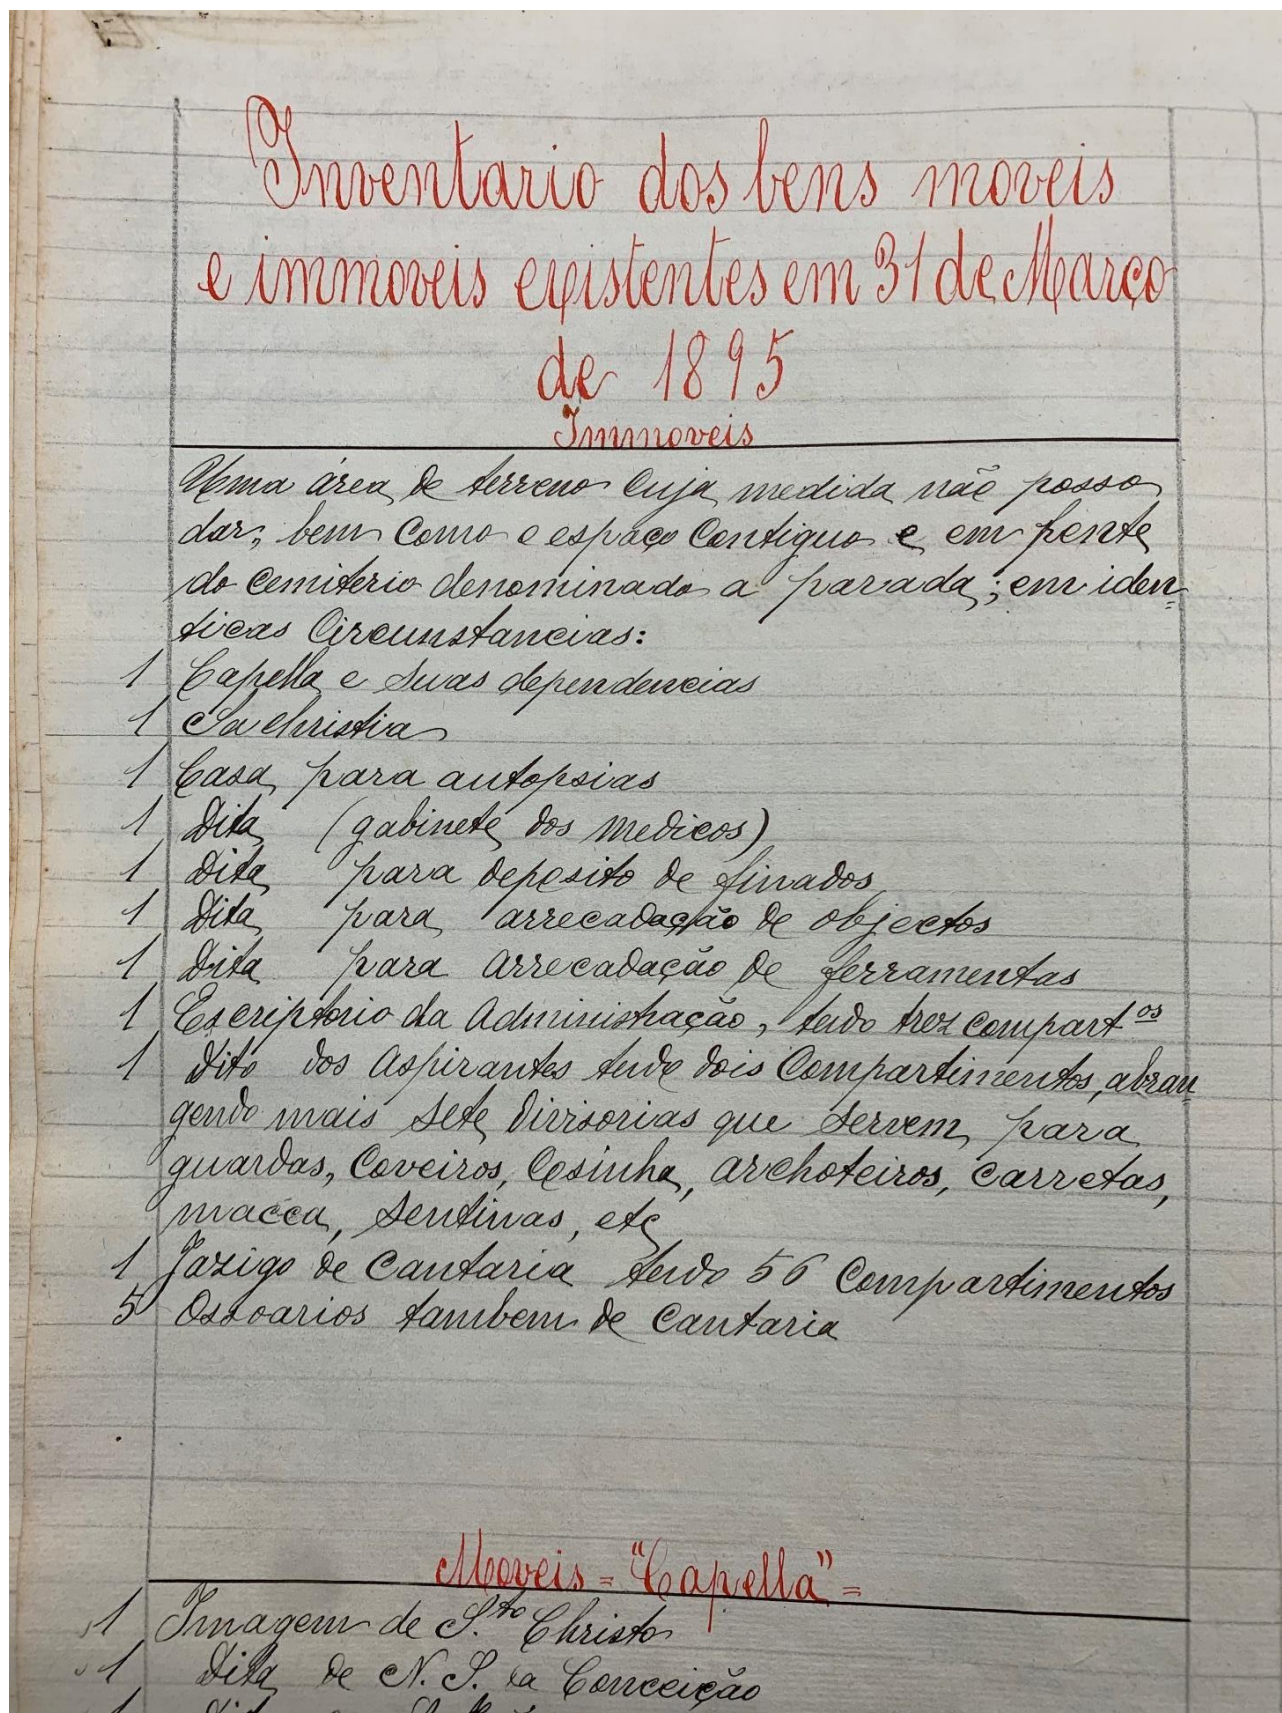 Inventario dos bens moveis
e immoveis existentes em 31 de Março
de 1895
Immoveis
Uma área de terreno cuja medida não posso
dar; bem como o espaço contiguo e em frente
do cemiterio denominado a parada; em iden=
ticas circunstancias:
1 Capella e suas dependencias
1 Sachristia
1 Casa para autopsias
1 Dita (gabinete dos medicos)
1 Dita para deposito de finados
1 Dita para arrecadação de objectos
1 Dita para arrecadação de ferramentas
1 Escriptorio da Administração, tendo trez compart.os
1 Dito dos Aspirantes tendo dois Compartimentos, abran=
gendo mais sete divisorias que servem para
guardas, Coveiros, Cosinha, archoteiros, carretas,
macca, sentinas, etc
1 Jazigo de Cantaria tendo 56 Compartimentos
5 Ossoarios tambem de Cantaria
Moveis = "Capella" =
1 Imagem de S.to Christo
1 Dita de N. S. da Conceição
1